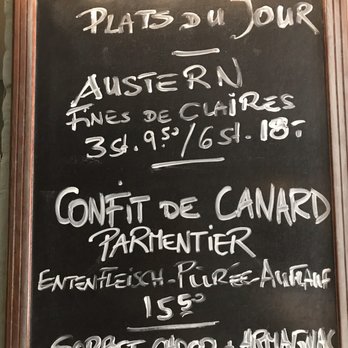 PLATS DU JOUR
AUSTERN
FINES DE CLAIRES
3 St. 9.50 / 6 St. 18.-
CONFIT DE CANARD
PARMENTIER
ENTENFLEISCH-PÜRÉE-AUFLAUF
15.50
SORBET CHOCO + ARMAGNAC